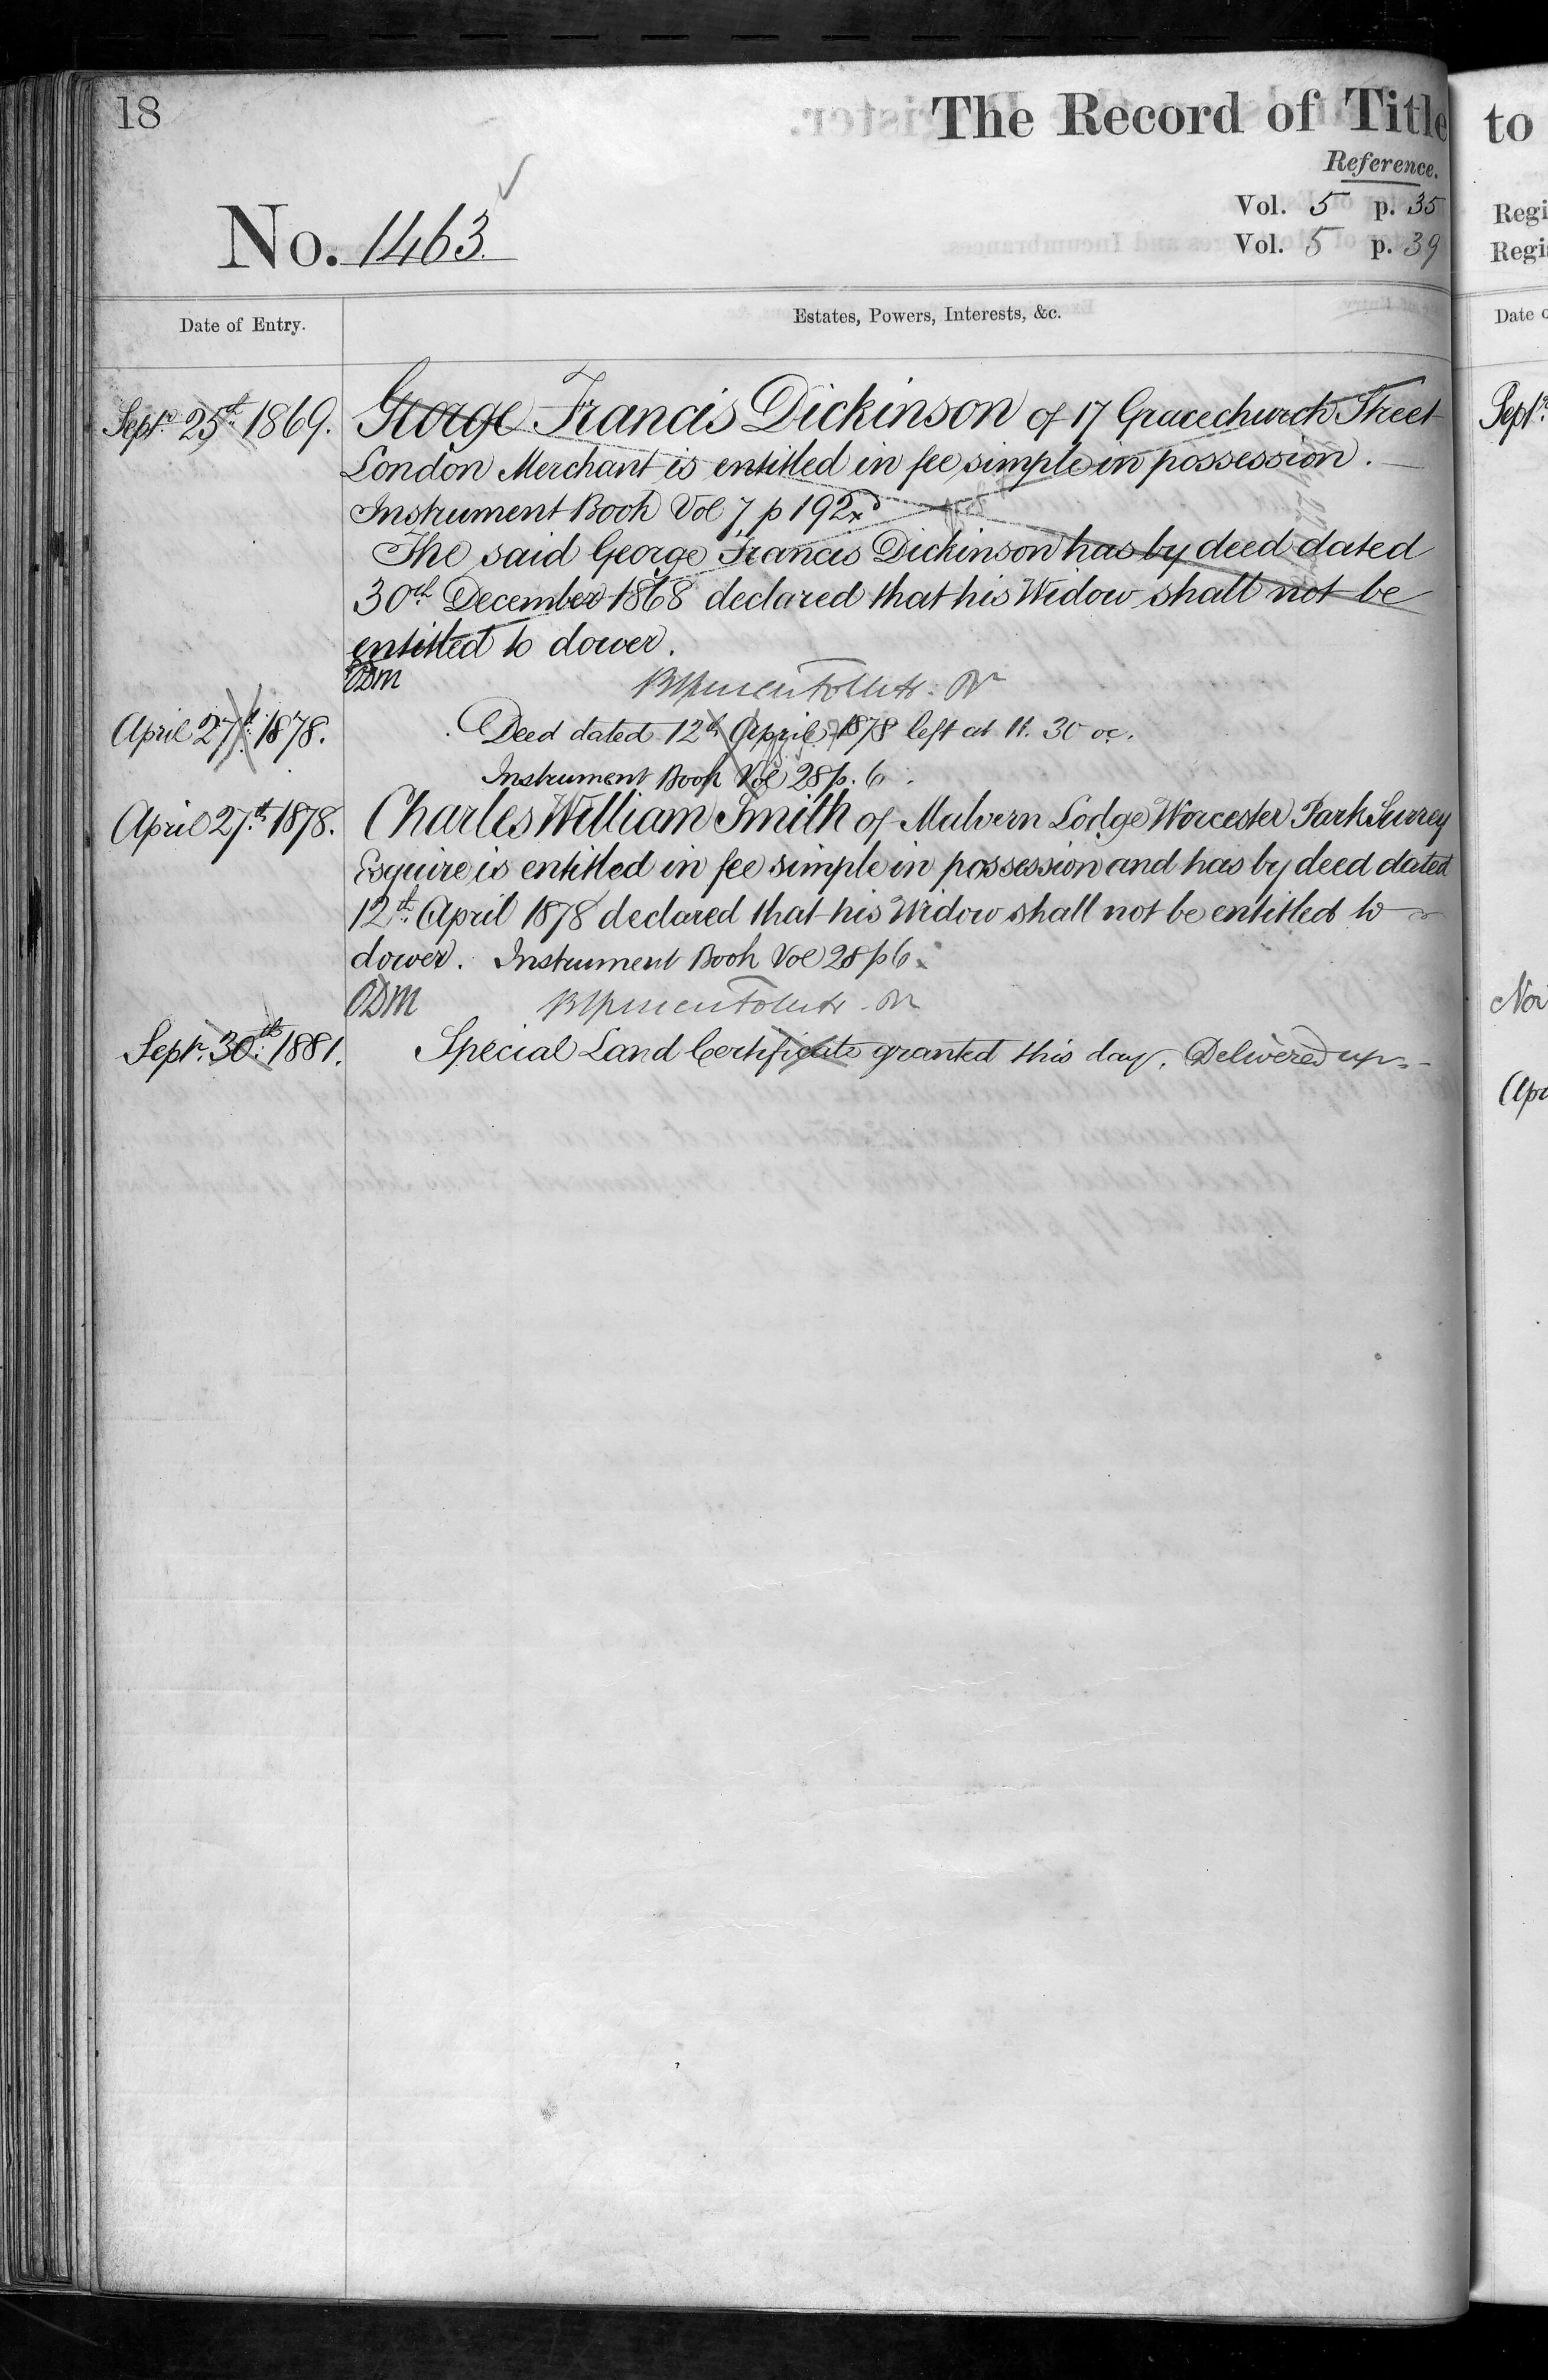 18
The Record of Title
to
Reference.
Vol. 5 p. 35
Vol. 5 p. 39
No. 1463.
Regi
Regi
Date of Entry.
Estates, Powers, Interests, &c.
Date o
Septr. 25th 1869. George Francis Dickinson of 17 Gracechurch Street
London Merchant is entitled in fee simple in possession.
Instrument Book Vol 7 p 192
The said George Francis Dickinson has by deed dated
30th December 1868 declared that his Widow shall not be
entitled to dower.
ODM
April 27th 1878. Deed dated 12th April 1878 left at 11. 30 oc.
Instrument Book Vol 28 p. 6.
April 27th 1878. Charles William Smith of Malvern Lodge Worcester Park Surrey
Esquire is entitled in fee simple in possession and has by deed dated
12th April 1878 declared that his Widow shall not be entitled to
dower. Instrument Book Vol 28 p 6
ODM
Septr. 30th 1881. Special Land Certificate granted this day. Delivered up.
Septr.
Nov
Apr